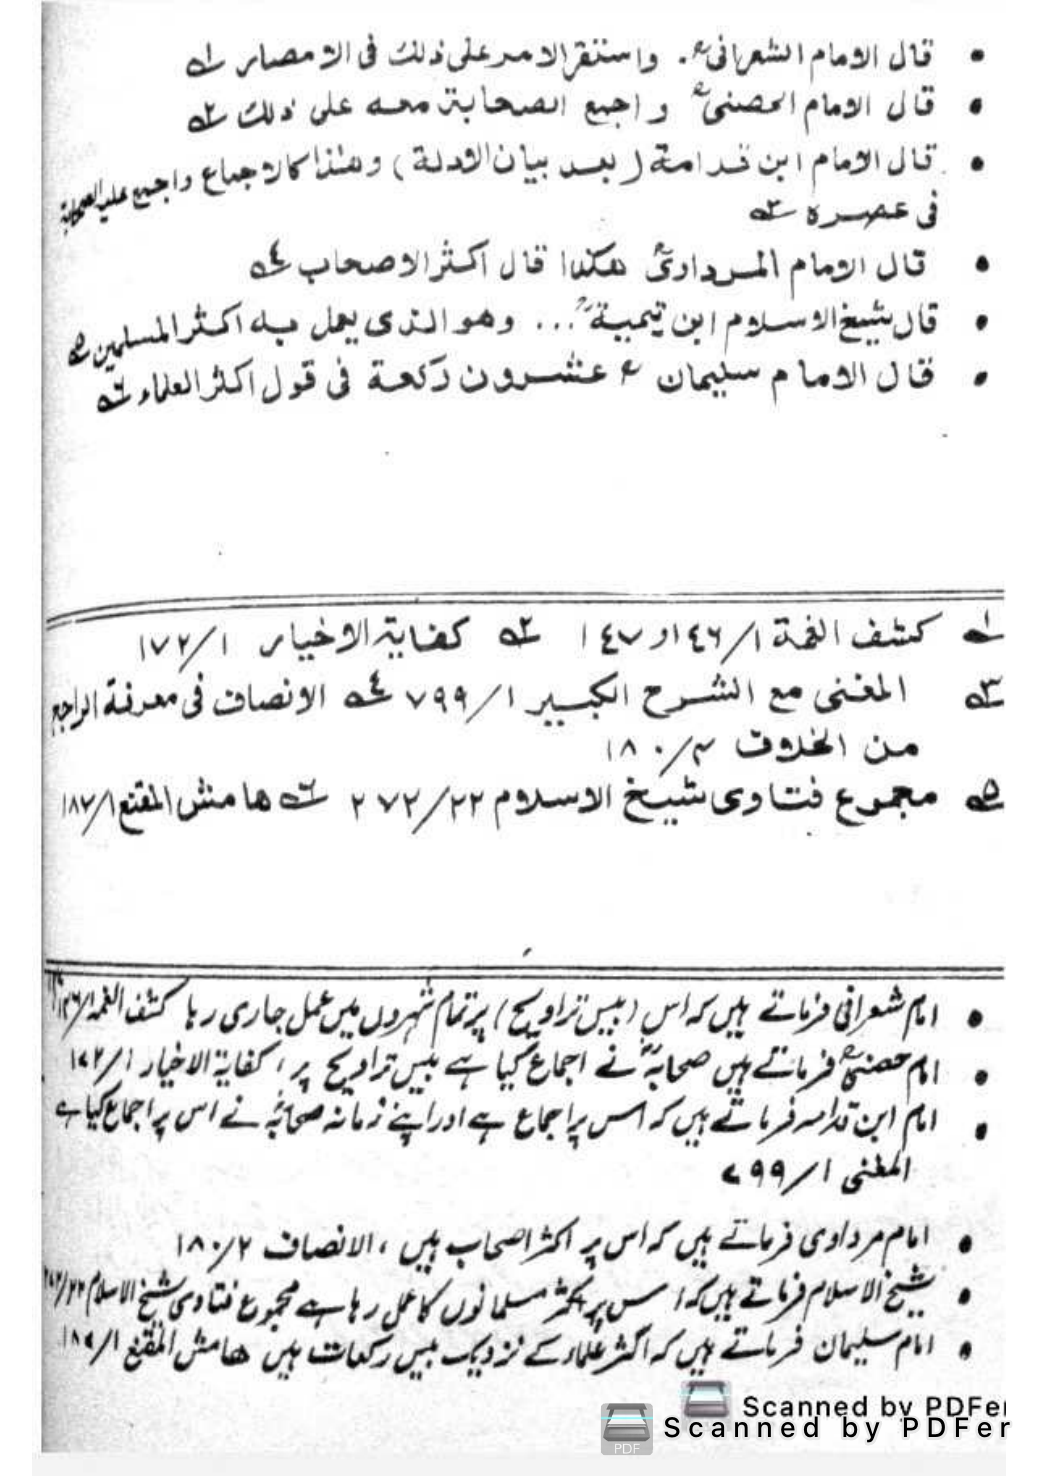 • قال الامام الشعرانیؒ. واستقر الامر علی ذلك فی الامصار ۱ھ
• قال الامام الحصنیؒ واجمع الصحابة معه علی ذلك ۲ھ
• قال الامام ابن قدامة (بعد بیان الادلة) وهٰذا كالاجماع واجمع علیه الصحابة
فی عصره ۳ھ
• قال الامام المرداویؒ هكذا قال اكثر الاصحاب ۴ھ
• قال شیخ الاسلام ابن تیمیةؒ ... وهو الذی یعمل به اكثر المسلمین ۵ھ
• قال الامام سلیمانؒ عشرون ركعة فی قول اكثر العلماء ۶ھ
۱ھ كشف الغمة ۱/۱٤٦ او ۱٤۷ ۲ھ كفایة الاخیار ۱/۱۷۲
۳ھ المغنی مع الشرح الكبیر ۱/۷۹۹ ۴ھ الانصاف فی معرفة الراجع
من الخلاف ۲/۱۸۰
۵ھ مجموع فتاوی شیخ الاسلام ۲۲/۲۷۲ ۶ھ هامش المقنع ۱/۱۸۷
• امام شعرانی فرماتے ہیں کہ اس (بیس تراویح) پر تمام شہروں میں عمل جاری رہا کشف الغمہ ۱/۱۴۶
• امام حصنیؒ فرماتے ہیں صحابہؓ نے اجماع کیا ہے بیس تراویح پر، کفایة الاخیار ۱/۱۷۲
• امام ابن قدامہ فرماتے ہیں کہ اس پر اجماع ہے اور اپنے زمانہ صحابہؓ نے اس پر اجماع کیا ہے
المغنی ۱/۷۹۹
• امام مرداوی فرماتے ہیں کہ اس پر اکثر اصحاب ہیں ، الانصاف ۲/۱۸۰
• شیخ الاسلام فرماتے ہیں کہ اس پر اکثر مسلمانوں کا عمل رہا ہے مجموع فتاوی شیخ الاسلام ۲۲/۲۷۲
• امام سلیمان فرماتے ہیں کہ اکثر علماء کے نزدیک بیس رکعات ہیں هامش المقنع ۱/۱۸۷
Scanned by PDFer
Scanned by PDFer
PDF